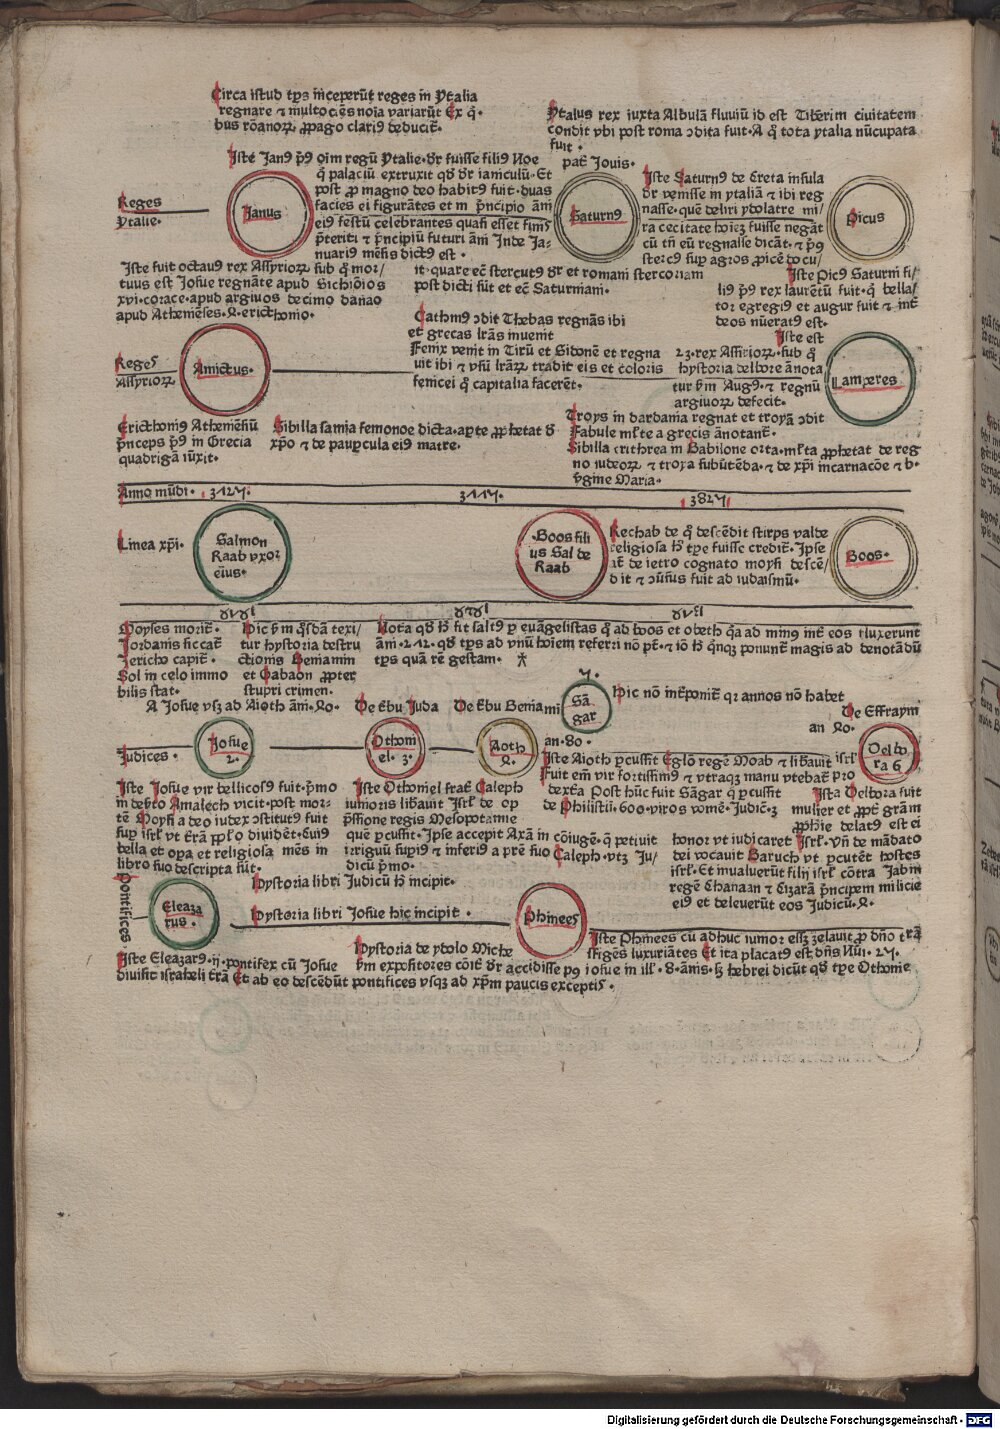 Circa istud tp̄s inceperūt reges in Ytalia
regnare ⁊ multociēs noīa variarūt Ex qͥ·
bus rōanoꝝ ꝓpago clariꝰ deducit̄·
Ytalus rex iuxta Albulā fluuiū id est Tiberim ciuitatem
condit vbi post roma ꝯdita fuit· A qͦ tota ytalia nūcupata
fuit·
Iste Janꝰ pͥꝰ oīm regū Ytalie· dr̄ fuisse filiꝰ Noe
q̄ palaciū extruxit qd̄ dr̄ ianiculū· Et
post ꝓ magno deo habitꝰ fuit· duas
facies ei figurātes et in pͥncipio āni
eiꝰ festū celebrantes quasi esset finiſ
p̄teriti ⁊ pͥncipiū futuri āni Inde Ja-
nuariꝰ mēsis dictꝰ est·
Reges
Ytalie·
Janus
pat̄ Jouis·
Saturnꝰ
Iste Saturnꝰ de Creta insula
dr̄ venisse in ytaliā ⁊ ibi reg
nasse· quē deliri ydolatre mi/
ra cecitate hoīeꝫ fuisse negāt
cū tn̄ eū regnasse dicāt· ⁊ pͥꝰ
stercꝰ suꝑ agros ꝓicē docu/
it· quare ec̄ stercutꝰ dr̄ et romani sterconiam
post dicti sūt et ec̄ Saturniani·
Picus
Iste Picꝰ Saturni fi/
liꝰ pͥꝰ rex laurētū fuit· qͥ bella/
tor egregiꝰ et augur fuit ⁊ int̄
deos nūeratꝰ est·
Iste fuit octauꝰ rex Assyrioꝝ sub qͦ mor/
tuus est Josue regnāte apud Sichiōios
xvi· corace· apud argiuos decimo danao
apud Athenēses· 4· ericthonio·
Cathmꝰ ꝯdit Thebas regnās ibi
et grecas lrās inuenit
Fenix venit in Tirū et Sidonē et regna
uit ibi ⁊ vsū lrāꝝ tradit eis et coloris
fenicei qͦ capitalia facerēt·
Reges
Assyrioꝝ
Amictus·
Iste est
23· rex Assirioꝝ· sub qͦ
hystoria delbore ānota
tur ẜm Augꝰ· ⁊ regnū
argiuoꝝ defecit·
Lamperes
Ericthoniꝰ Atheniēsiū
pͥnceps pͥꝰ in Grecia
quadrigā iūxit·
Sibilla samia femonoe dicta· aꝑte ꝓphetat d̄
xp̄o ⁊ de pauꝑcula eiꝰ matre·
Troys in dardania regnat et troyā ꝯdit
Fabule ml̄te a grecis ānotant̄·
Sibilla erithrea in Babilone orta· ml̄ta ꝓphetat de reg
no iudeoꝝ ⁊ troya subūtēda· ⁊ de xp̄i incarnacōe ⁊ b·
v̄gine Maria·
Anno mūdi· 3127· 3117· 3827
Linea xp̄i·
Salmon
Raab vxor
eius·
Boos fili
us Sal de
Raab
Rechab de qͦ descēdit stirps valde
religiosa h̄ tꝑe fuisse credit̄· Ipse
it̄ de ietro cognato moysi descē/
dit ⁊ ꝯūsus fuit ad iudaismū·
Boos·
Moyses morit̄·
Jordanis siccat̄
Jericho capit̄·
Sol in celo immo
bilis stat·
Hic ẜm qͦsdā texi/
tur hystoria destru
ctionis Beniamin
et Gabaon ꝓpter
stupri crimen·
Nota qd̄ h̄ fit saltꝰ ꝑ euāgelistas qͥ ad boos et obeth qͥa ad minꝰ int̄ eos fluxerunt
āni· 212· qd̄ tp̄s ad vnū hoīem referri nō pt̄· ⁊ iō h̄ qͥnqꝫ ponunt̄ magis ad denotādū
tp̄s quā rē gestam·
A Josue vsqꝫ ad Aioth āni· 40·
De t̄bu Juda
De t̄bu Beniami
7·
Sā
gar
Hic nō int̄ponit̄ qꝛ annos nō habet
De Effraym
an 40·
Judices·
Josue
2·
Othoni
el· 3·
Aoth
4·
an· 80·
Delbo
ra 6
Iste Aioth ꝑcussit Eglō regē Moab ⁊ libauit isrl̄
Fuit em̄ vir fortissimꝰ ⁊ vtraqꝫ manu vtebat̄ pro
dext̄a Post hūc fuit Sāgar qͥ ꝑcussit
de Philistiī· 600· viros vomē· Judic̄· 3
Iste Josue vir bellicosꝰ fuit· pͥmo
in deſto Amalech vicit· post mor-
tē Moysi a deo iudex ꝯstitutꝰ fuit
suꝑ isrl̄ vt t̄rā ꝓplo diuidēt· Cuiꝰ
bella et oꝑa et religiosa mēs in
libro suo descripta sūt·
Iste Othoniel frat̄ Caleph
iunioris libauit Isrl̄ de op
pͥssione regis Mesopotamie
quē ꝑcussit· Ipse accepit Axā in cōiugē· qͣ petiuit
irriguū suꝑiꝰ ⁊ inferiꝰ a prē suo Caleph· vtꝫ Ju/
dicū pͥmo·
Ista Delbora fuit
mulier et ꝓpt̄ grām
ꝓphīe delatꝰ est ei
honor vt iudicaret Isrl̄· Vn̄ de mādato
dei vocauit Baruch vt ꝑcutēt hostes
isrl̄· Et inualuerūt filij isrl̄ cōtra Jabin
regē Chanaan ⁊ Cizarā pͥncipem milicie
eiꝰ et deleuerūt eos Judicū· 4·
Hystoria libri Judicū h̄ incipit·
Pontifices·
Eleaza
rus·
Hystoria libri Josue hic incipit·
Phinees
Iste Phinees cū adhuc iunior esseꝫ zelauit ꝓ dn̄o trā
sfigēs luxuriātes Et ita placatꝰ est dn̄s Nūi· 27·
Iste Eleazarꝰ· ij· pontifex cū Josue
Hystoria de ydolo Miche
ẜm expositores cōit̄ dr̄ accidisse pꝰ iosue in ill· 8· ānis· ꝫ hebrei dicūt qd̄ tꝑe Othonie
diuisit israheli t̄rā Et ab eo descēdūt pontifices vsqꝫ ad xp̄m paucis exceptis·
Digitalisierung gefördert durch die Deutsche Forschungsgemeinschaft - DFG